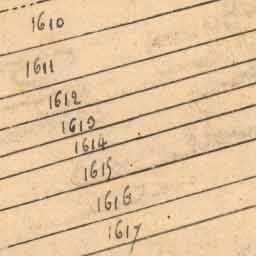 1610
1611
1612
1613
1614
1615
1616
1617